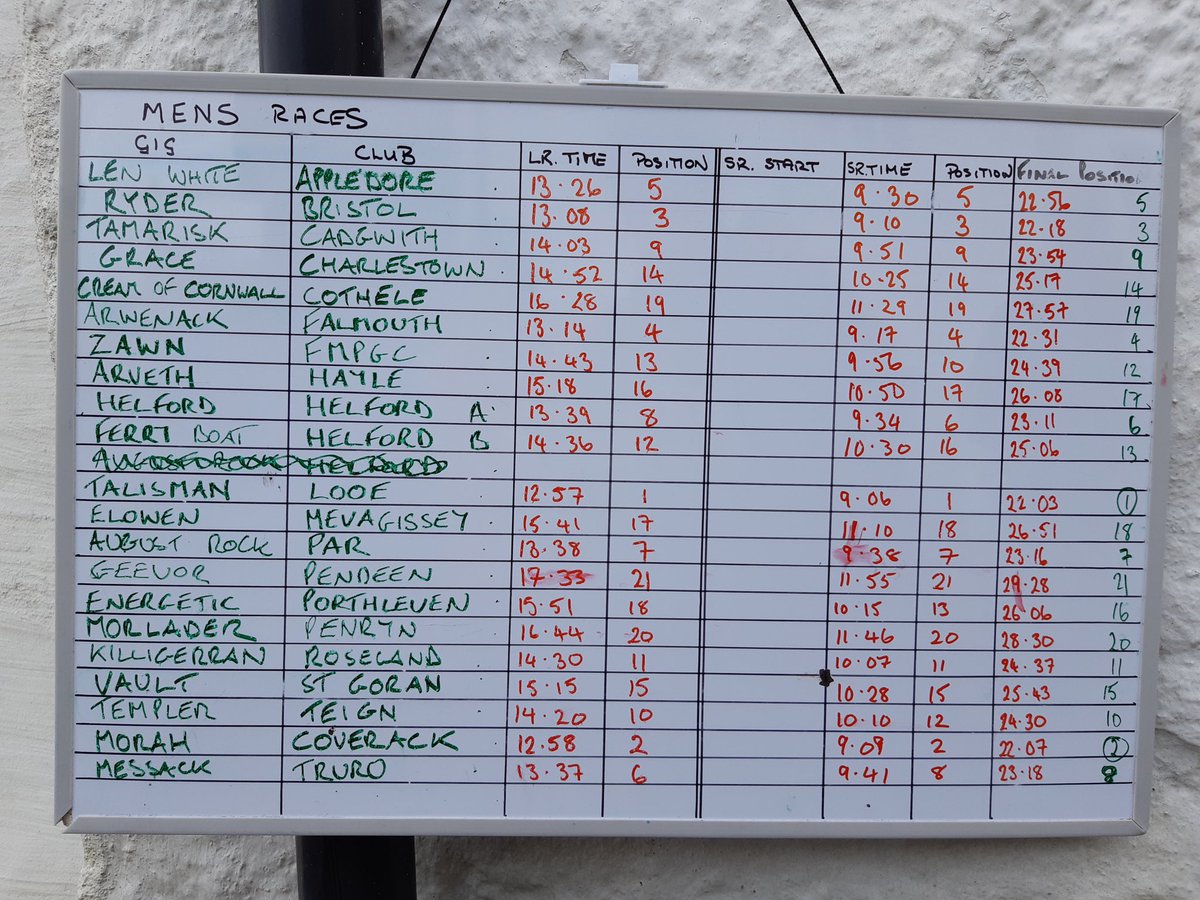 MENS RACES
GIG CLUB LR. TIME POSITION SR. START SR.TIME POSITION FINAL POSITION
LEN WHITE APPLEDORE 13.26 5 9.30 5 22.56 5
RYDER BRISTOL 13.08 3 9.10 3 22.18 3
TAMARISK CADGWITH 14.03 9 9.51 9 23.54 9
GRACE CHARLESTOWN 14.52 14 10.25 14 25.17 14
CREAM OF CORNWALL COTHELE 16.28 19 11.29 19 27.57 19
ARWENACK FALMOUTH 13.14 4 9.17 4 22.31 4
ZAWN FMPGC 14.43 13 9.56 10 24.39 12
ARVETH HAYLE 15.18 16 10.50 17 26.08 17
HELFORD HELFORD A 13.39 8 9.34 6 23.11 6
FERRY BOAT HELFORD B 14.36 12 10.30 16 25.06 13
HELFORD
TALISMAN LOOE 12.57 1 9.06 1 22.03 1
ELOWEN MEVAGISSEY 15.41 17 11.10 18 26.51 18
AUGUST ROCK PAR 13.38 7 9.38 7 23.16 7
GEEVOR PENDEEN 17.33 21 11.55 21 29.28 21
ENERGETIC PORTHLEVEN 15.51 18 10.15 13 26.06 16
MORLADER PENRYN 16.44 20 11.46 20 28.30 20
KILLIGERRAN ROSELAND 14.30 11 10.07 11 24.37 11
VAULT ST GORAN 15.15 15 10.28 15 25.43 15
TEMPLER TEIGN 14.20 10 10.10 12 24.30 10
MORAH COVERACK 12.58 2 9.09 2 22.07 2
MESSACK TRURO 13.37 6 9.41 8 23.18 8